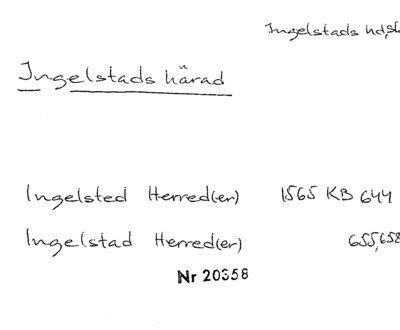 Ingelstads hd, Sk
Ingelstads härad
Ingelsted Herred(er) 1565 KB 644
Ingelstad Herred(er) 655,658
Nr 20358